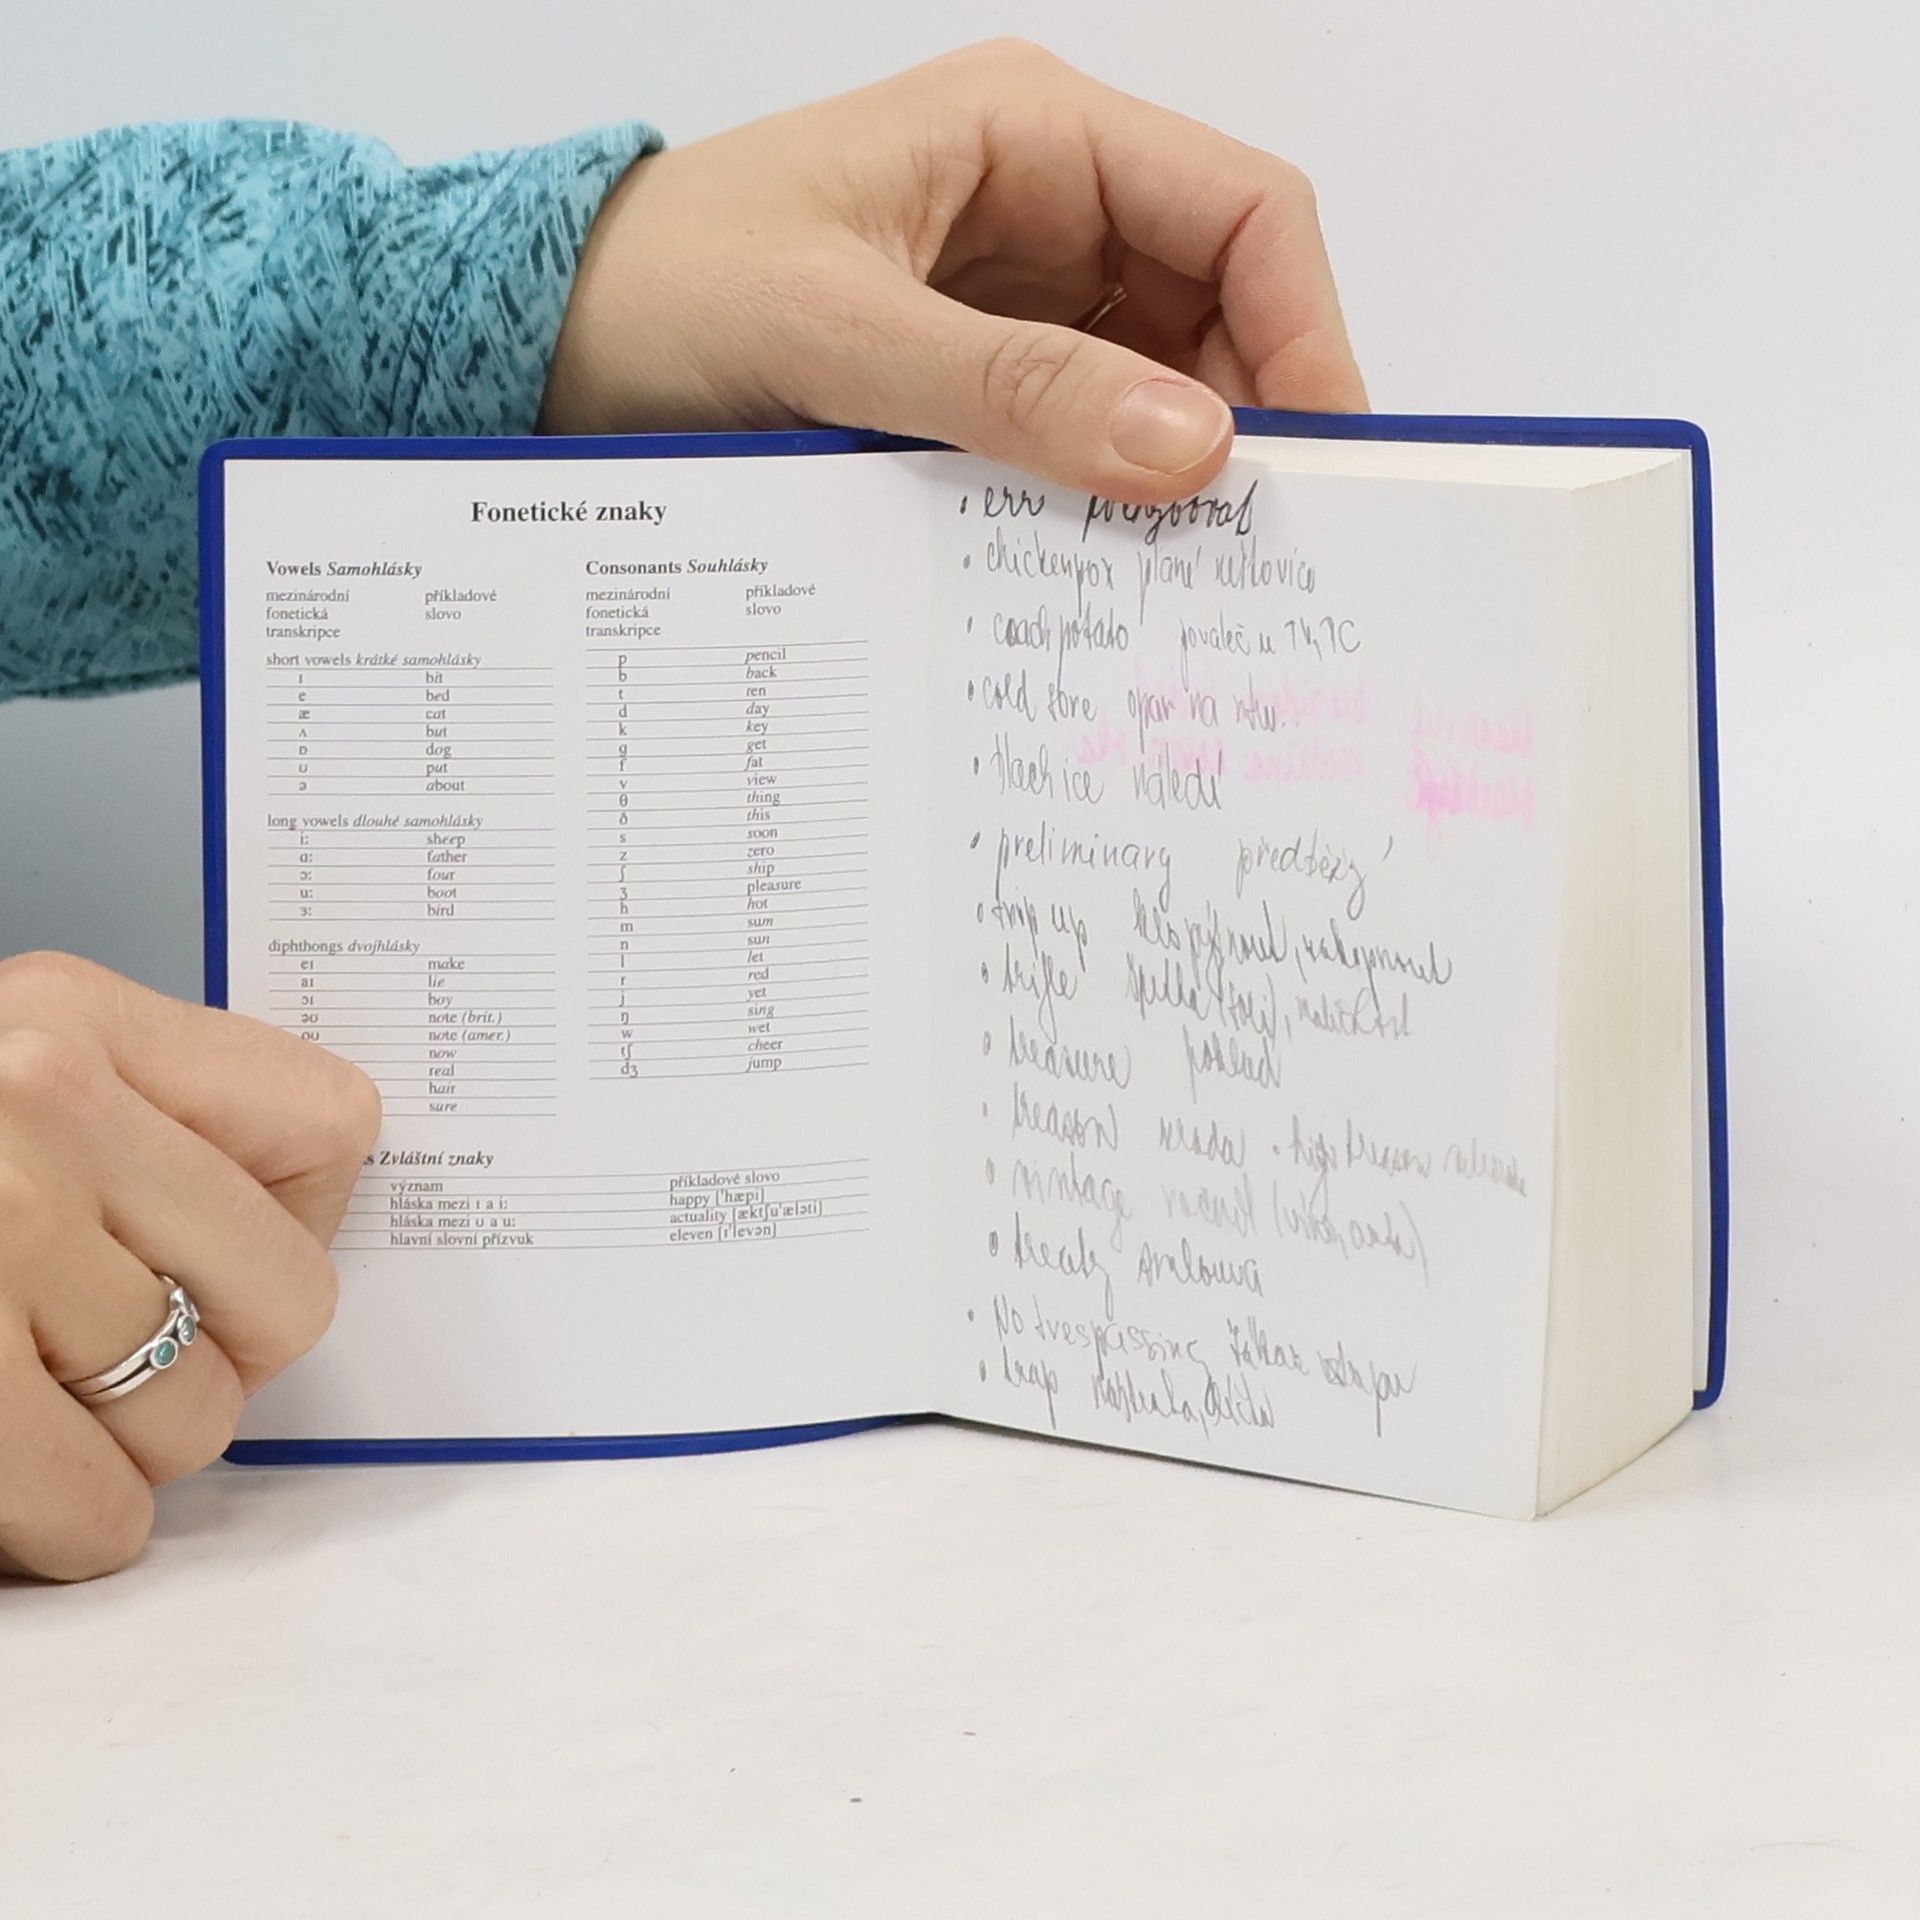 Fonetické znaky
Vowels Samohlásky
mezinárodní příkladové
fonetická slovo
transkripce
short vowels krátké samohlásky
ɪ bit
e bed
æ cat
ʌ but
ɒ dog
ʊ put
ə about
long vowels dlouhé samohlásky
i: sheep
ɑ: father
ɔ: four
u: boot
ɜ: bird
diphthongs dvojhlásky
eɪ make
aɪ lie
ɔɪ boy
əʊ note (brit.)
oʊ note (amer.)
now
real
hair
sure
Consonants Souhlásky
mezinárodní příkladové
fonetická slovo
transkripce
p pencil
b back
t ten
d day
k key
g get
f fat
v view
θ thing
ð this
s soon
z zero
ʃ ship
ʒ pleasure
h hot
m sum
n sun
l let
r red
j yet
ŋ sing
w wet
tʃ cheer
dʒ jump
s Zvláštní znaky
význam příkladové slovo
hláska mezi ɪ a i: happy ['hæpi]
hláska mezi ʊ a u: actuality [æktʃu'æləti]
hlavní slovní přízvuk eleven [ɪ'levən]
• err
• chickenpox plané neštovice
• coach potato povaleč u TV, PC
• cold sore opar na rtu
• ice náledí
• preliminary předběžný
• trip up klopýtnout, zakopnout
• trifle
• treasure poklad
• treason zrada • high treason
• vintage
• treaty smlouva
• No trespassing zákaz vstupu
• trap